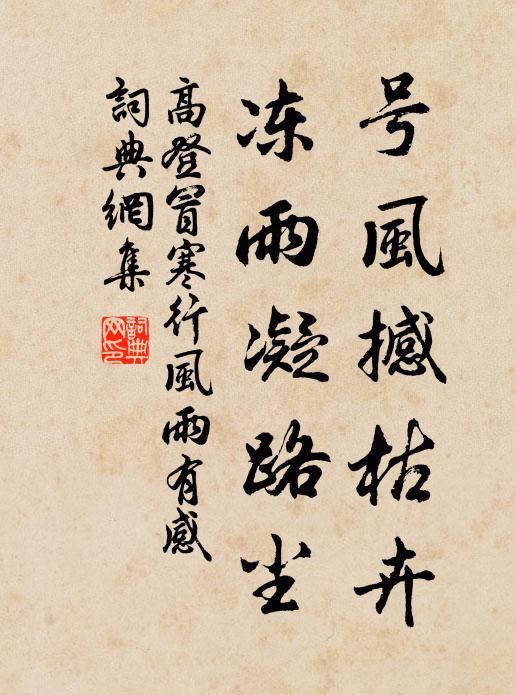 号風撼枯卉
冻雨凝路尘
高登冒寒行風雨有感
詞典網集
詞典网印